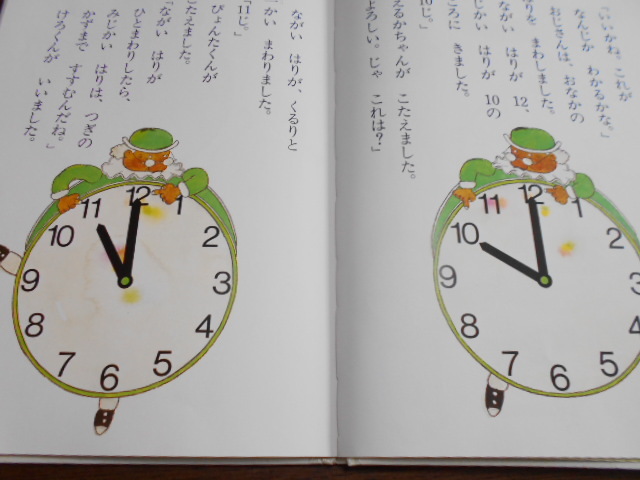 「いいかね。これが
なんじか わかるかな。」
おじさんは、おなかの
はりを まわしました。
ながい はりが 12、
みじかい はりが 10の
ところに きました。
「10じ。」
かえるかちゃんが こたえました。
「よろしい。じゃ これは?」
ながい はりが、くるりと
一かい まわりました。
「11じ。」
ぴょんたくんが
こたえました。
「ながい はりが
ひとまわりしたら、
みじかい はりは、つぎの
かずまで すすむんだね。」
けろくんが いいました。
12
1
2
3
4
5
6
7
8
9
10
11
12
1
2
3
4
5
6
7
8
9
10
11